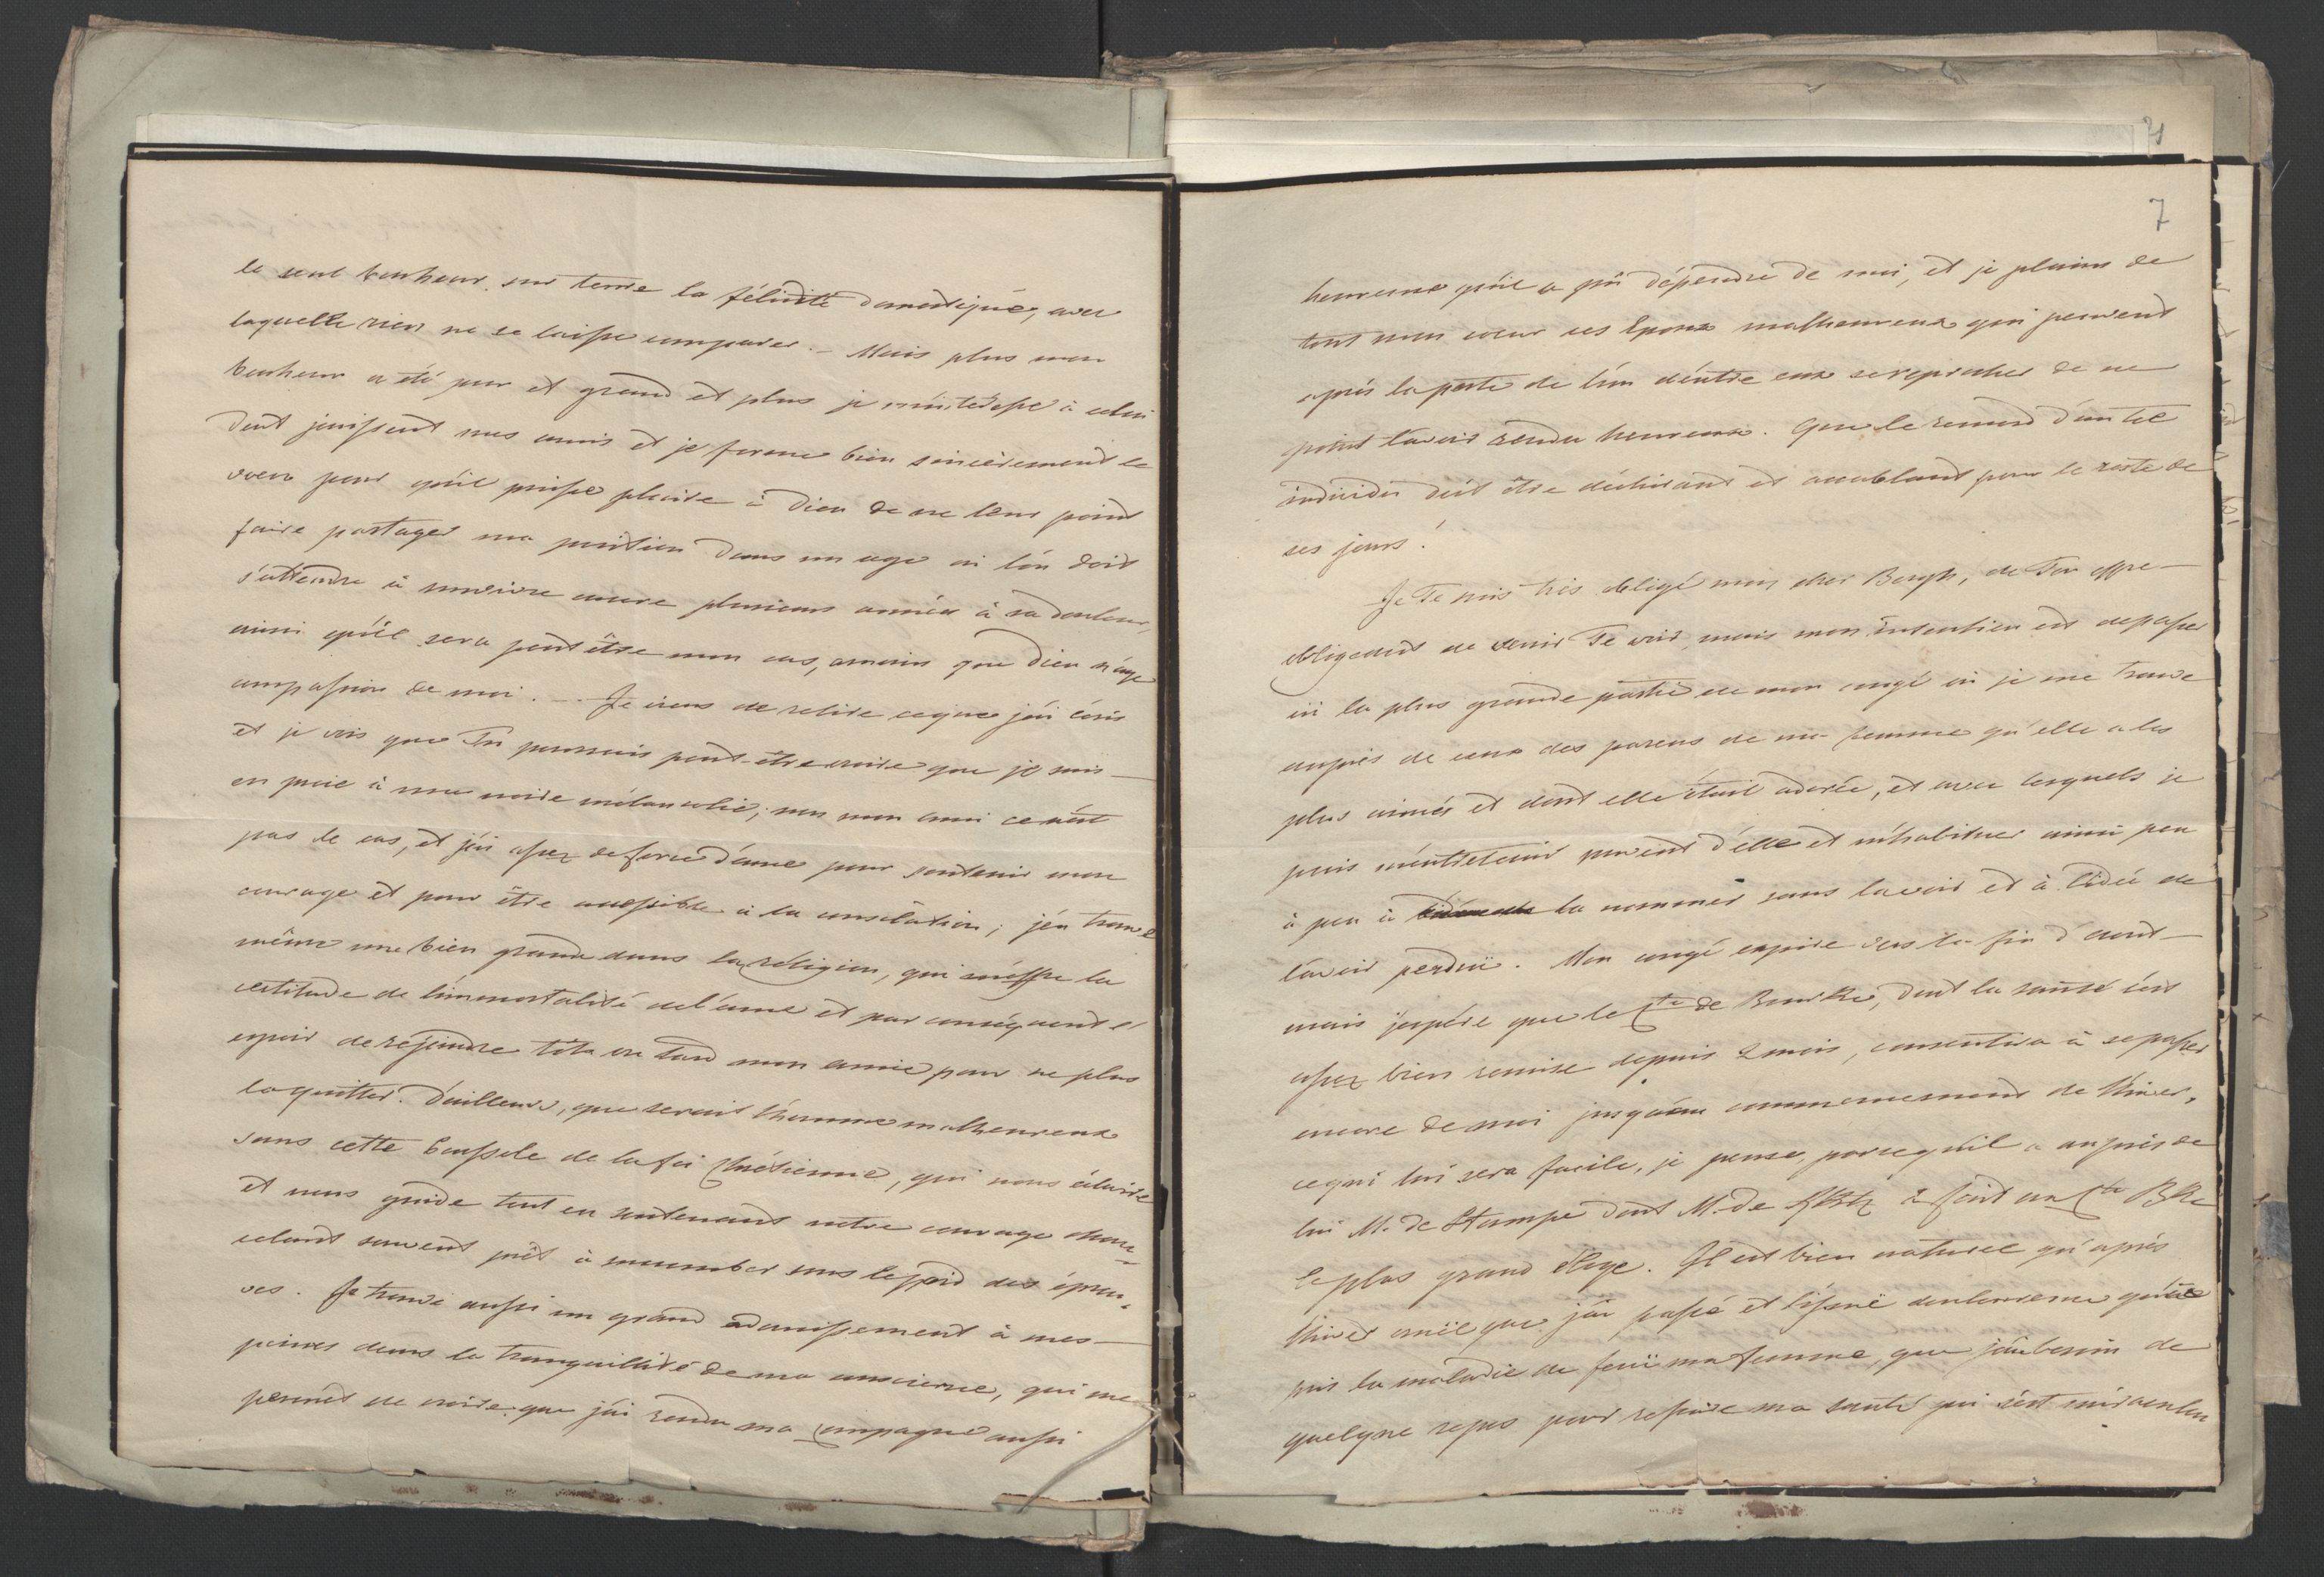 le seul bonheur sur terre la félicité domestique, avec
laquelle rien ne se laisse comparer. – Mais plus mon
bonheur a été pur et grand et plus je m'intéresse à celui
dont jouissent mes amis et je forme bien sincèrement le
voeu pour qu'il puisse plaire à Dieu de ne leur point
faire partager ma position dans un age où l'on doit
s'attendre à survivre encore plusieurs années à sa douleur,
ainsi qu'il sera peut être mon cas, amoins que Dieu n'aye
compassion de moi. – Je viens de relire ceque j'ai écris
et je vois que Tu pourrais peut-être croire que je suis
en proie à ma noire mélancolie; non mon ami ce n'est
pas le cas, et j'ai assez de force d'ame pour soutenir mon
courage et pour être accessible à la consolation; j'en trouve
même une bien grande dans la réligion, qui m'offre la
certitude de l'immortalité de l'ame et par conséquent l'
espoir de rejoindre tôt ou tard mon amie pour ne plus
la quitter. D'ailleurs, que serait l'homme malheureux
sans cette boussole de la foi Chrétienne, qui nous éclaire
et nous guide tout en soutenant notre courage chan-
celant souvent prêt à succomber sous le poid des épreu-
ves. Je trouve aussi un grand adoucissement à mes
peines dans la tranquillité de ma conscience, qui me
permet de croire que j'ai rendu ma compagne aussi
7
heureuse qu'il a pû dépendre de moi, et je plains de
tout mon coeur ces Epoux malheureux qui peuvent
après la perte de l'un d'entre eux se reprocher de ne
point l'avoir rendu heureux. Que le remord d'un tel
individu doit être déchirant et accablant pour le reste de
ses jours!
Je Te suis très obligé mon cher Bergh, de Ton offre
obligeant de venir Te voir, mais mon intention est de passer
ici la plus grande partie de mon congé où je me trouve
auprès de ceux des parens de ma femme qu'elle a les
plus aimés et dont elle était adorée, et avec lesquels je
puis m'entretenir souvent d'elle et m'habituer ainsi peu
à peu à la nommer sans la voir et à l'idée de
l'avoir perdüe. Mon congé expire vers la fin d'aout
mais j'espére que le Cte de Bourke, dont la santé s'est
assez bien remise depuis 2 mois, consentira à se passer
encore de moi jusqu'au commencement de l'hiver,
ce qui lui sera facile, je pense, parsequ'il a auprès de
lui M. de Stampe dont M. de
le plus grand éloge. Il est bien naturel qu'après
l'hiver cruël que j'ai passé et l'issuë douloureuse qu'a
pris la maladie de feuë ma femme, que j'aie besoin de
quelque repos pour refaire ma santé qui s'est